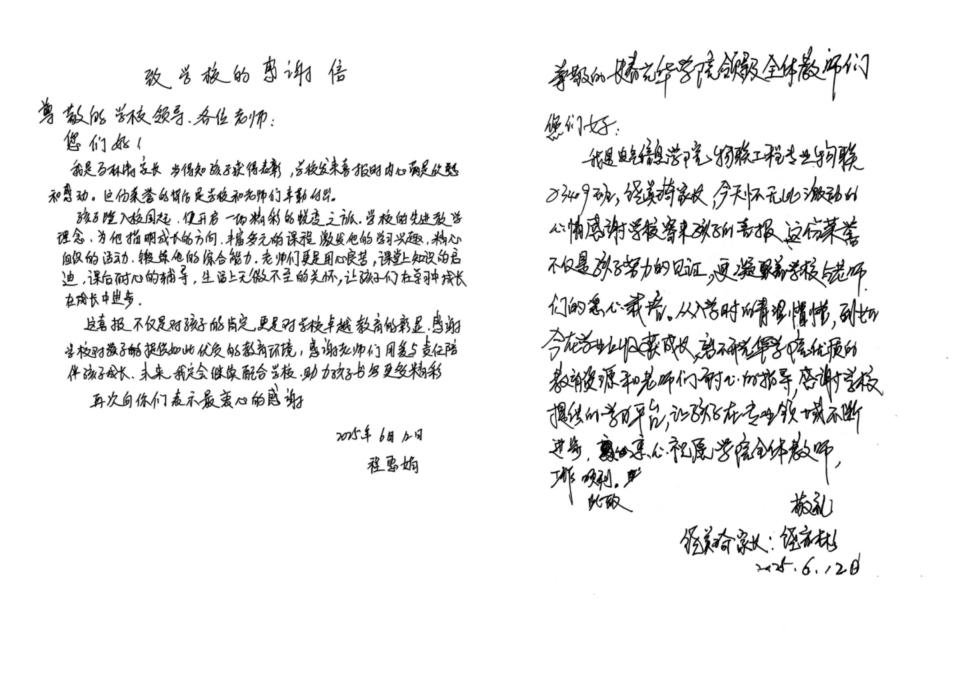 致学校的感谢信
尊敬的学校领导、各位老师：
您们好！
我是 家长 当得知孩子获得表彰，学校发来喜报时内心满是欣慰
和感动。这份荣誉的背后是学校和老师们辛勤付出。
孩子踏入校园起，便开启一场精彩的蜕变之旅。学校的先进教学
理念，为他指明成长的方向，丰富多元的课程 激发他的学习兴趣，精心
组织的活动，锻炼他的综合能力。老师们更是用心良苦，课堂上知识的启
迪，课后耐心的辅导，生活上无微不至的关怀，让孩子们在学习中成长
在成长中进步。
这喜报不仅是对孩子的肯定，更是对学校卓越教育的彰显。感谢
学校对孩子的提供如此优质的教育环境，感谢老师们用爱与责任陪
伴孩子成长。未来，我定会继续配合学校，助力孩子书写更繁精彩
再次向你们表示最衷心的感谢
2025年6月12日
程 娟
尊敬的 光华学院领导及全体教师们
您们好：
我是电气信息学院 物联工程专业物联
23409班， 家长，今天怀无比激动的
心情感谢学校寄来孩子的喜报，这份荣誉
不仅是孩子努力的见证，更凝聚着学校与老师
们的悉心栽培。从入学时的青涩懵懂，到如
今在学业上收获成长，离不开光华学院优质的
教育资源和老师们耐心的指导，感谢学校
提供的学习平台，让孩子在专业领域不断
进步， 衷心祝愿学院全体教师，
工作顺利。
此致
敬礼
家长：
2025.6.12日